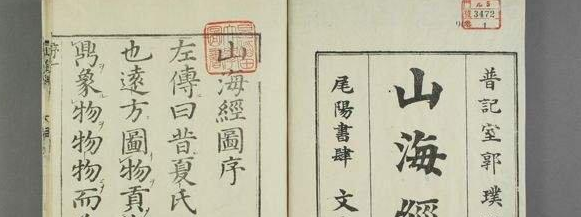 3472
1
晉記室郭璞
山海經
尾陽書肆 文
山海經圖序
左傳曰昔夏氏
也遠方圖物貢
鼎象物物物而
序一